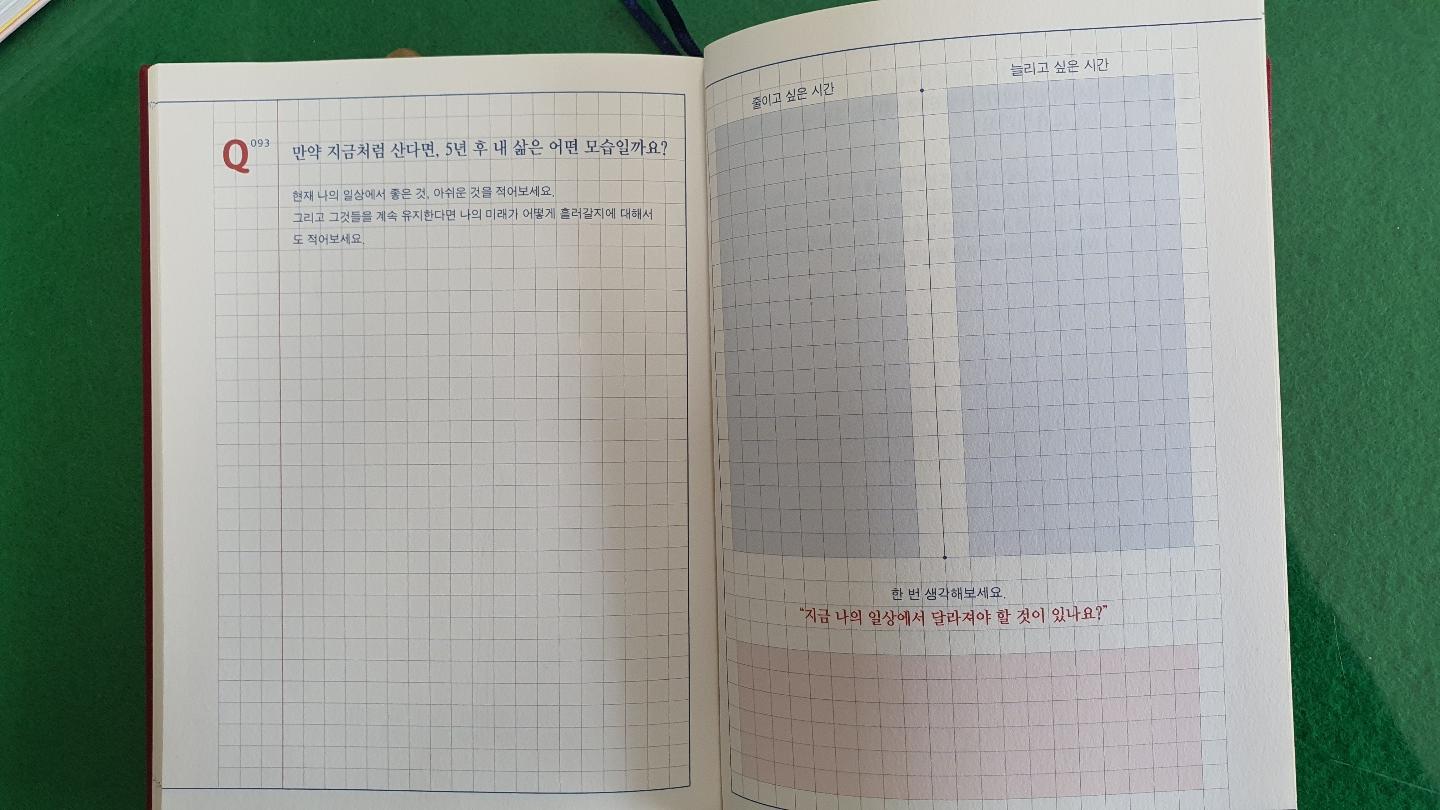 Q093
만약 지금처럼 산다면, 5년 후 내 삶은 어떤 모습일까요?
현재 나의 일상에서 좋은 것, 아쉬운 것을 적어보세요.
그리고 그것들을 계속 유지한다면 나의 미래가 어떻게 흘러갈지에 대해서
도 적어보세요.
줄이고 싶은 시간
늘리고 싶은 시간
한 번 생각해보세요.
“지금 나의 일상에서 달라져야 할 것이 있나요?”